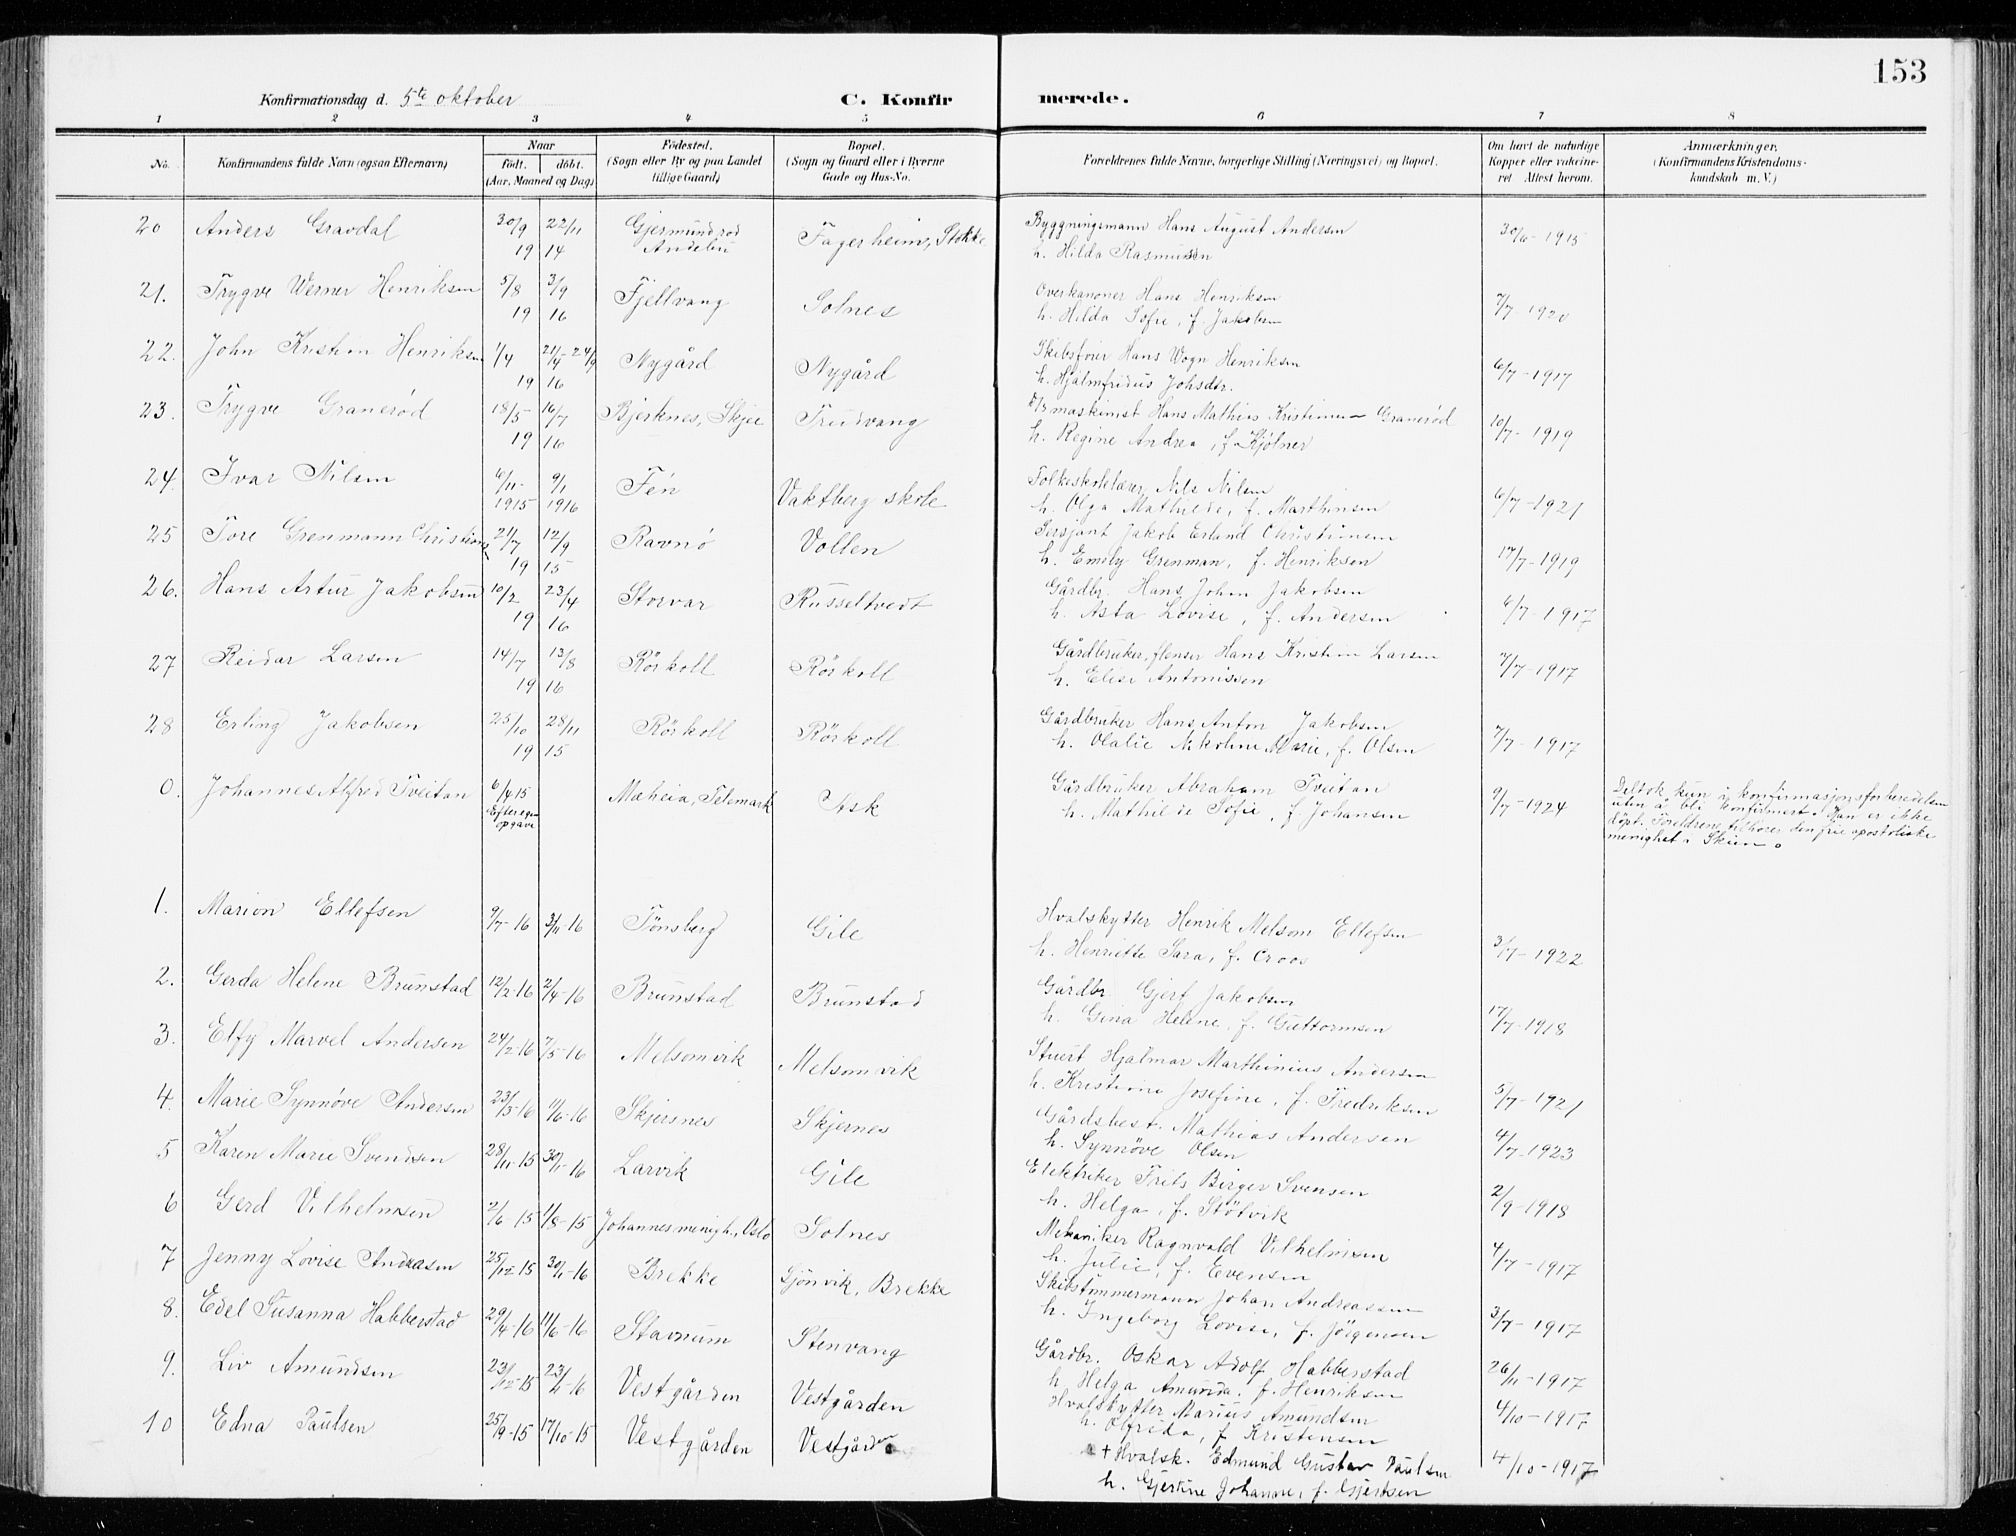 153
Konfirmationsdag d. 5te oktober
C. Konfirmerede.
1 2 3 4 5 6 7 8
No. Konfirmandens fulde Navn (ogsaa Efternavn) Naar født. døbt. (Aar, Maaned og Dag) Fødested. (Sogn eller By og paa Landet tillige Gaard) Bopæl. (Sogn og Gaard eller i Byerne Gade og Hus-No. Forældrenes fulde Navne, borgerlige Stilling (Næringsvei) og Bopæl. Om havt de naturlige Kopper eller vakcineret Attest herom. Anmærkninger. (Konfirmandens Kristendomskundskab m. V.)
20 Anders Gravdal 30/9 22/11 19 14 Gjermundrød Andebu Fagerheim, Stokke Byggningsmann Hans August Andersen 30/6-1915
h. Hilda Rasmussen
21. Trygve Werner Henriksen 5/8 3/9 19 16 Fjellvang Solnes Overkanoner Hans Henriksen 7/7-1920
h. Hilda Sofie, f. Jakobsen
22. John Kristian Henriksen 1/4 21/4-24/9 19 16 Nygård Nygård Skibsfører Hans Wogn Henriksen 6/7-1917
h. Hjalmfridus Johsdtr.
23. Trygve Granerød 18/5 16/7 19 16 Bjerknes, Skjee Trudvang maskinist Hans Mathias Kristiansen Granerød 10/7-1919
h. Regine Andrea, f. Kjølner
24. Ivar Nilsen 6/11-1915 9/1 1916 Fén Vaktberg skole Folkeskolelærer Nils Nilsen 6/7-1921
h. Olga Mathilde, f. Marthinsen
25 Tore Grenmann Christiansen 21/7 12/9 19 15 Ravnø Vollen Sersjant Jakob Erland Christiansen 17/7-1919
h. Emely Grenman, f. Henriksen
26. Hans Artur Jakobsen 10/2 23/4 19 16 Storvar Russeltvedt Gårdbr. Hans John Jakobsen 6/7-1917
h. Asta Lovise, f. Andersen
27 Reidar Larsen 14/7 13/8 19 16 Rörkoll Rörkoll Gårdbruker, flenser Hans Kristian Larsen 7/7-1917
h. Elise Antonissen
28 Erling Jakobsen 25/10 28/11 19 15 Rörkoll Rörkoll Gårdbruker Hans Anton Jakobsen 7/7-1917
h. Olalie Nikoline Marie, f. Olsen
0. Johannes Alfred Tveitan 6/4 15 Efter egen opgave Mæheia, Telemark Ask Gårdbruker Abraham Tveitan 9/7-1924
h. Mathilde Sofie, f. Johansen
Deltok kun i konfirmasjonsforberedelsen
uten å bli konfirmert. Han er ikke
døpt. Foreldrene tilhører den frie apostoliske
menighet i Skien.
1. Marion Ellefsen 9/7-16 3/11-16 Tönsberg Gile Hvalskytter Henrik Melsom Ellefsen 3/7-1922
h. Henriette Sara, f. Croos
2. Gerda Helene Brunstad 12/2-16 2/4-16 Brunstad Brunstad Gårdbr. Gjert Jakobsen 17/7-1918
h. Gina Helene, f. Guttormsen
3. Elfy Marvel Andersen 24/2-16 7/5-16 Melsomvik Melsomvik Stuert Hjalmar Marthinius Andersen 5/7-1921
h. Kristine Josefine, f. Fredriksen
4. Marie Synnøve Andersen 23/3-16 11/6-16 Skjersnes Skjernes Gårdsbest. Mathias Andersen 4/7-1923
h. Synnöve Olsen
5 Karen Marie Svendsen 28/11-15 30/1-16 Larvik Gile Elektriker Frits Birger Svensen 2/9-1918
h. Helga, f. Stötvik
6 Gerd Vilhelmsen 2/6-15 1/8-15 Johannes menigh., Oslo Solnes Mekaniker Ragnvald Vilhelmsen 4/7-1917
h. Julie, f. Evensen
7 Jenny Lovise Andreasen 25/12-15 30/1-16 Brekke Gjönvik, Brekke Skibstimmermann Johan Andreassen 3/7-1917
h. Ingeborg Lovise, f. Jörgensen
8. Edel Susanna Habberstad 29/4-16 11/6-16 Stavnum Stenvang Gårdbr. Oskar Adolf Habberstad 26/11-1917
h. Helga Amunda, f. Henriksen
9. Liv Amundsen 23/12-15 23/4-16 Vestgården Vestgården Hvalskytter Marius Amundsen 4/10-1917
h. Olfrida, f. Kristensen
10 Edna Paulsen 25/9-15 17/10-15 Vestgården Vestgården + Hvalsk. Edmund Gustav Paulsen 4/10-1917
h. Gjertine Johanne, f. Gjertsen